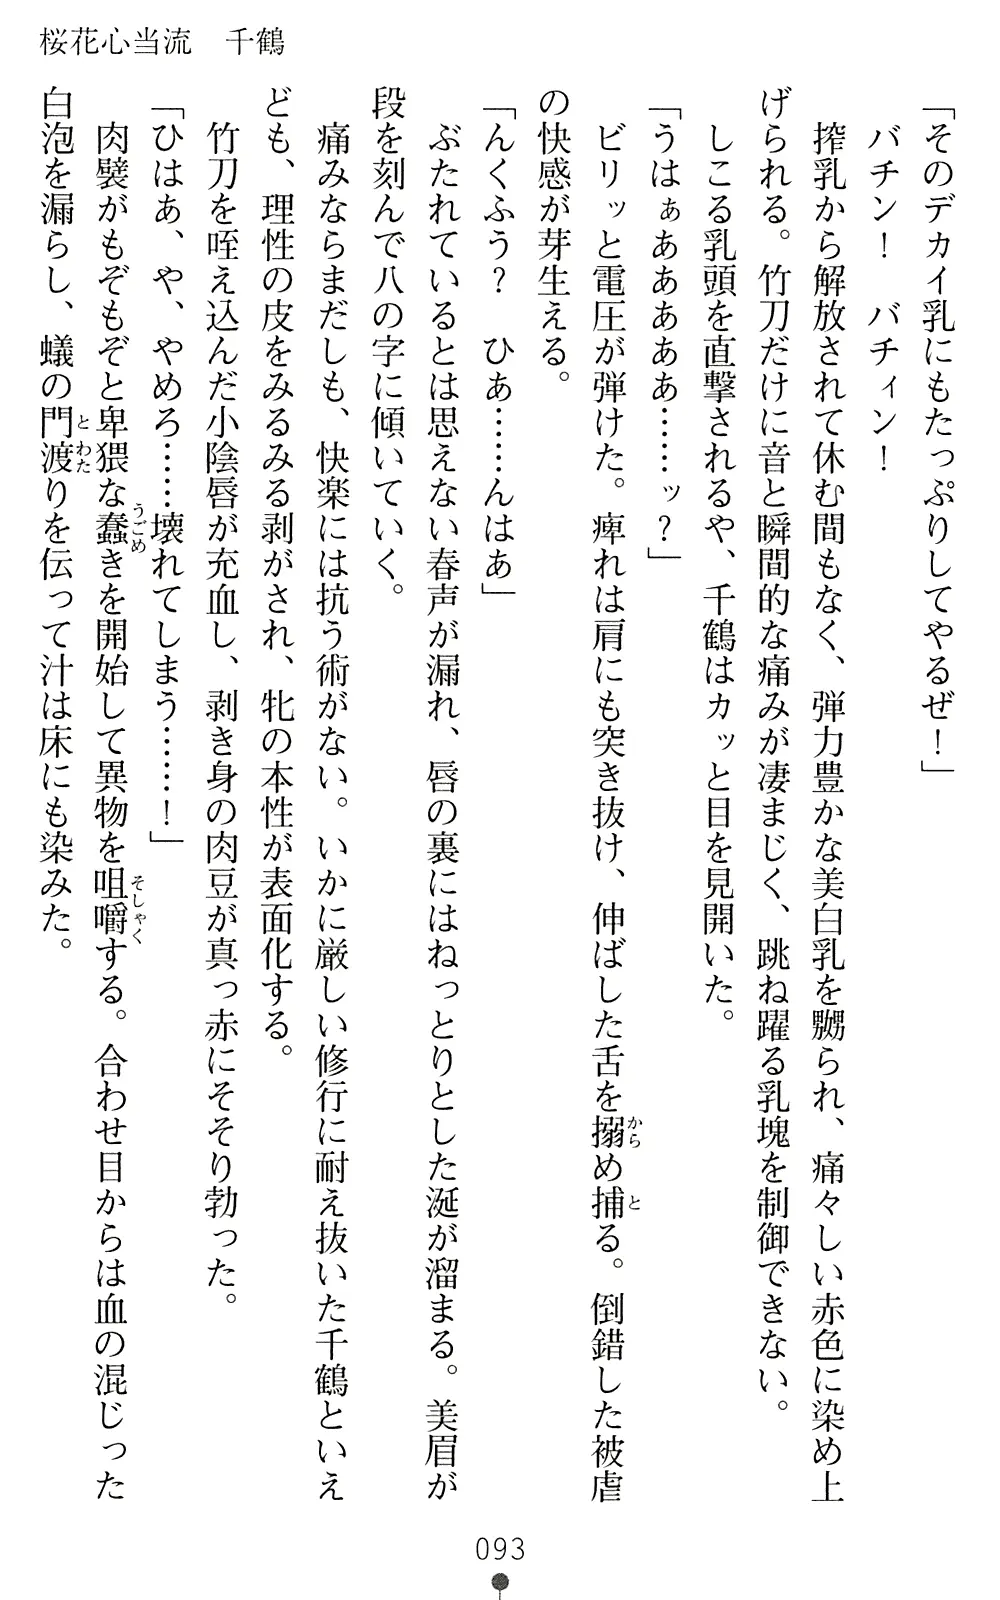 桜花心当流　千鶴
「そのデカイ乳にもたっぷりしてやるぜ！」
バチン！　バチィン！
搾乳から解放されて休む間もなく、弾力豊かな美白乳を嬲られ、痛々しい赤色に染め上
げられる。竹刀だけに音と瞬間的な痛みが凄まじく、跳ね躍る乳塊を制御できない。
しこる乳頭を直撃されるや、千鶴はカッと目を見開いた。
「うはぁああああ……ッ？」
ビリッと電圧が弾けた。痺れは肩にも突き抜け、伸ばした舌を搦め捕る。倒錯した被虐
の快感が芽生える。
「んくふう？　ひあ……んはあ」
ぶたれているとは思えない春声が漏れ、唇の裏にはねっとりとした涎が溜まる。美眉が
段を刻んで八の字に傾いていく。
痛みならまだしも、快楽には抗う術がない。いかに厳しい修行に耐え抜いた千鶴といえ
ども、理性の皮をみるみる剥がされ、牝の本性が表面化する。
竹刀を咥え込んだ小陰唇が充血し、剥き身の肉豆が真っ赤にそそり勃った。
「ひはあ、や、やめろ……壊れてしまう……！」
肉襞がもぞもぞと卑猥な蠢きを開始して異物を咀嚼する。合わせ目からは血の混じった
白泡を漏らし、蟻の門渡りを伝って汁は床にも染みた。
093